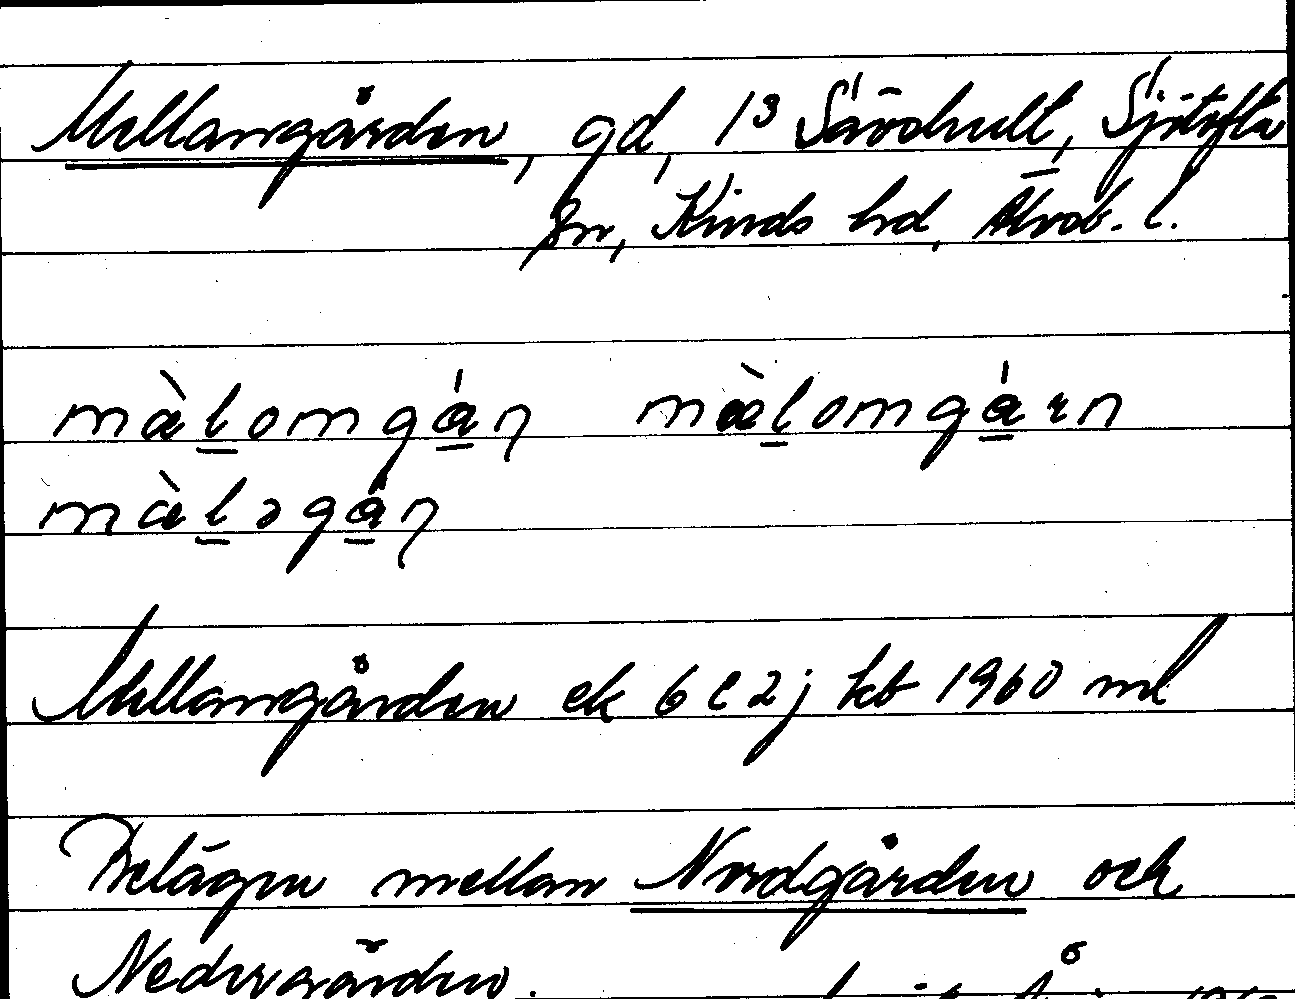 Mellangården, gd, 1³ Sävdhult, Sjötofta
sn, Kinds hd, Älvsb. l.
mæ̀lomgá̱ɳ mæ̀lomgá̱rn
mæ̀ləgá̱ɳ
Mellangården ek 6 C 2 j kb 1960 ml
Belägen mellan Nordgården och
Nedergården.